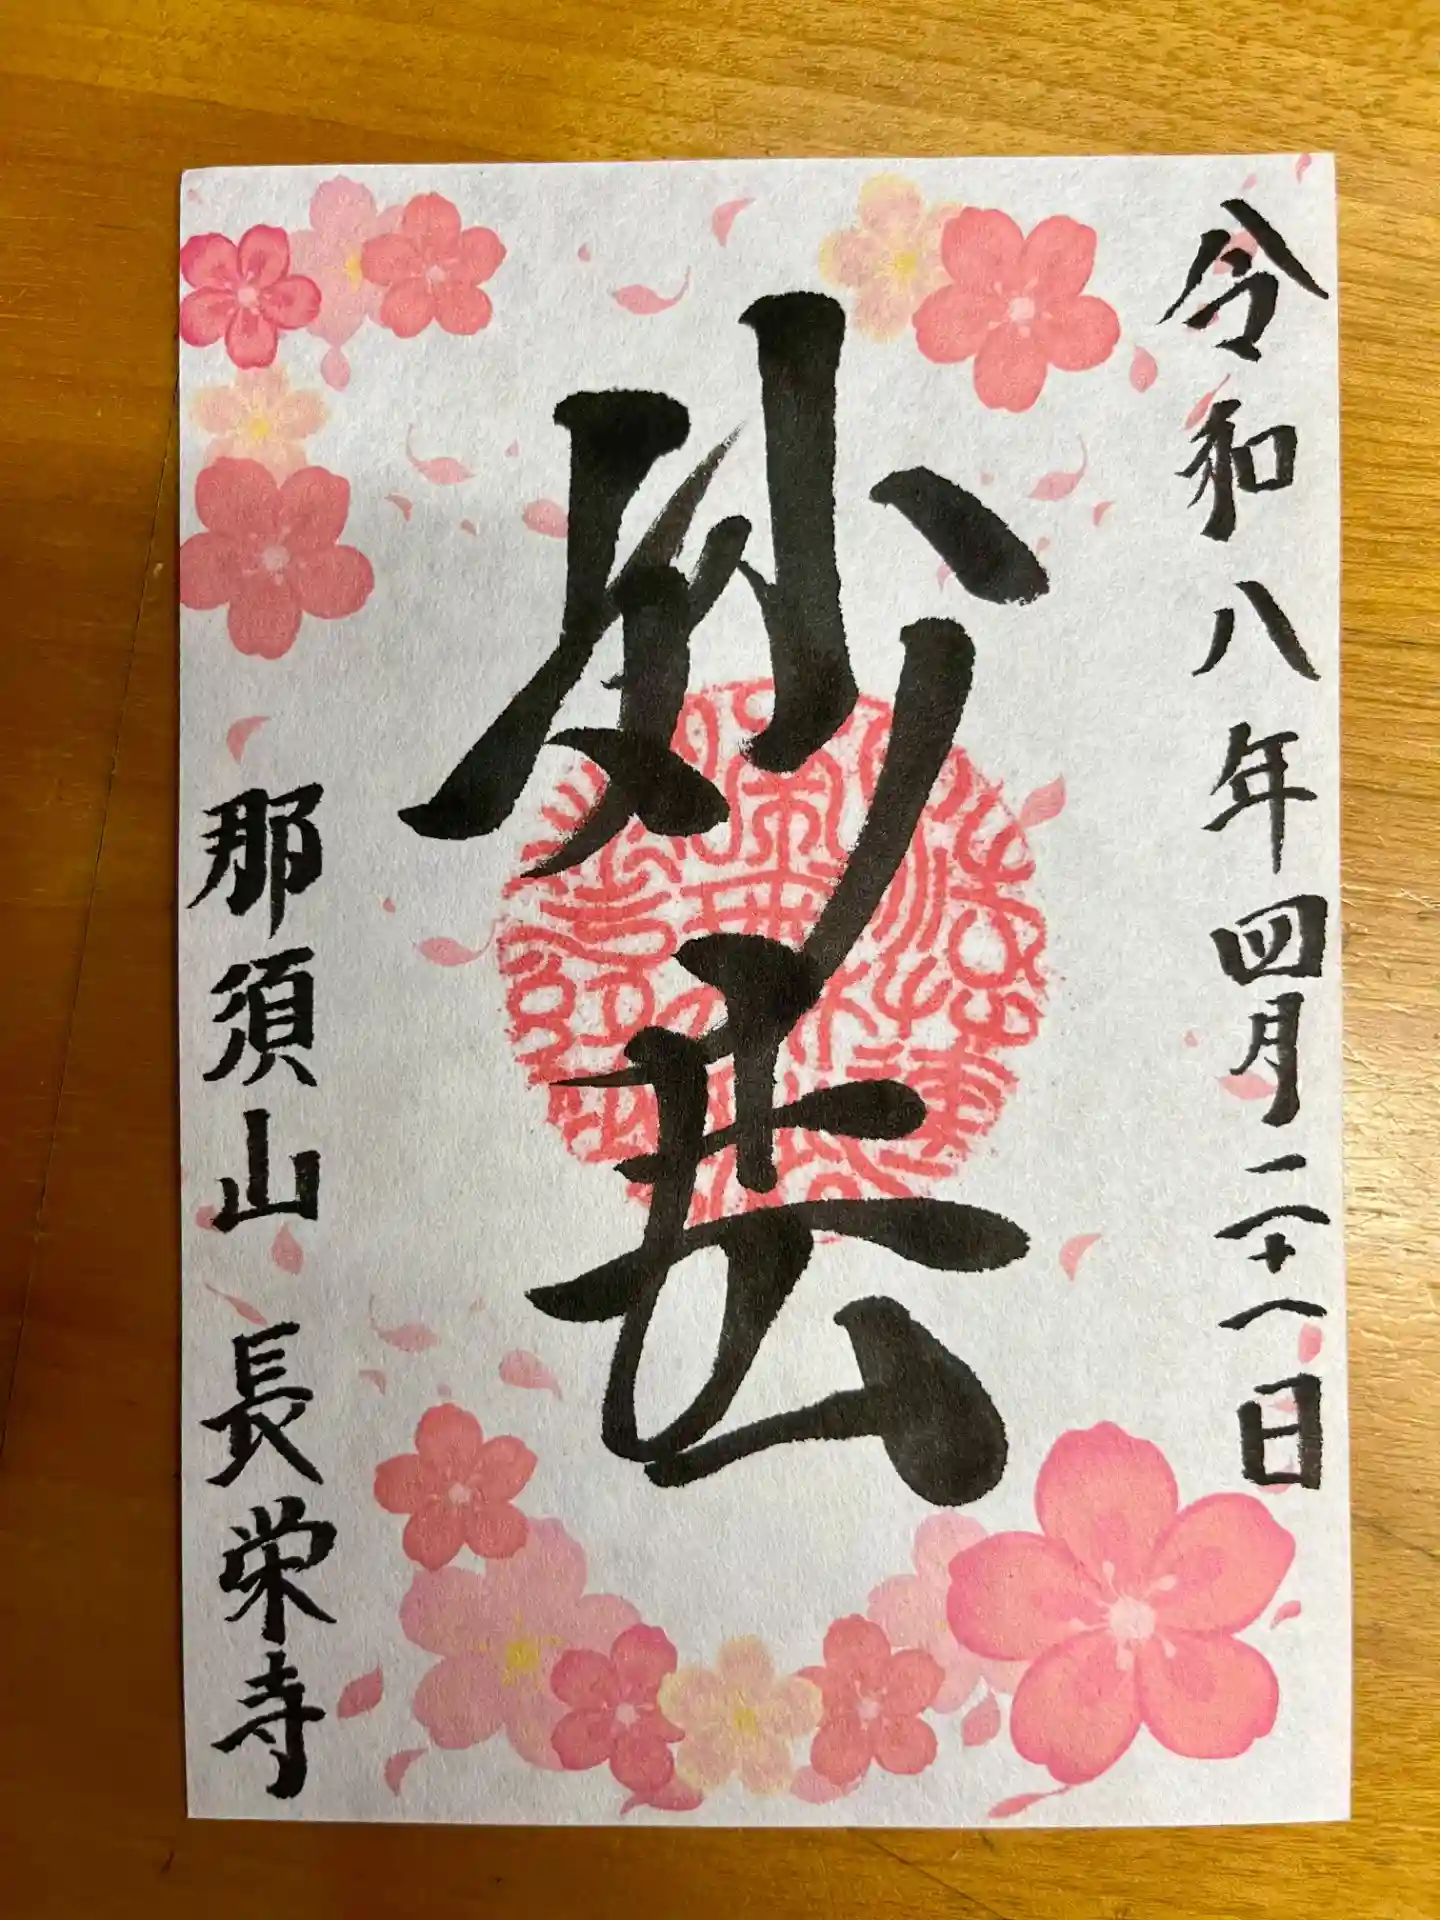 令和八年四月二十八日
妙法
那須山 長栄寺